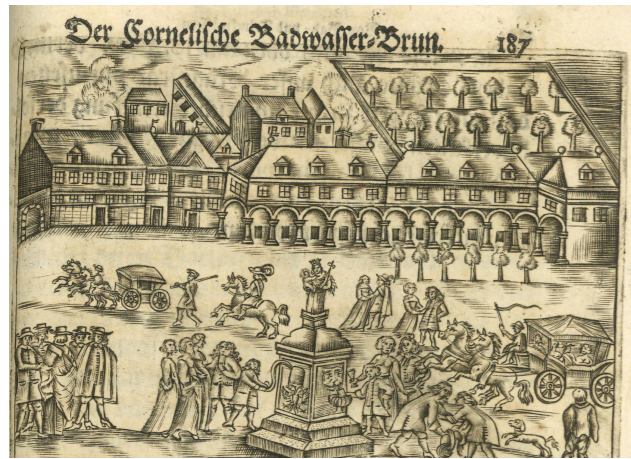 Der Cornelische Badwasser-Brun. 187